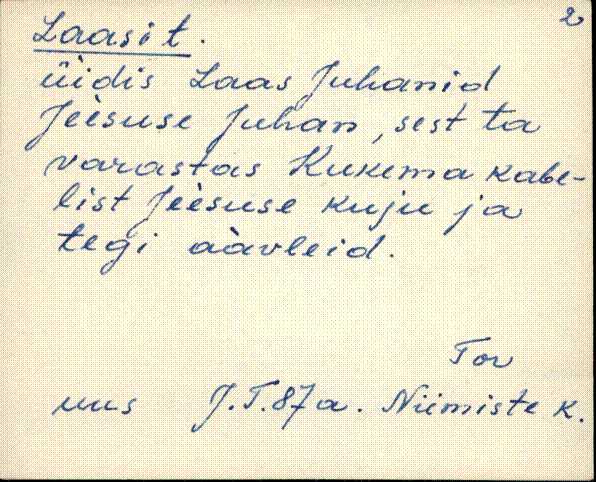 2
Laasit.
üidis Laas Juhanid
Jèesuse Juhan, sest ta
varastas Kukema kabe-
list Jèesuse kuju ja
tegi aàvleid.
Tor
uus J.T.87a. Niimiste k.